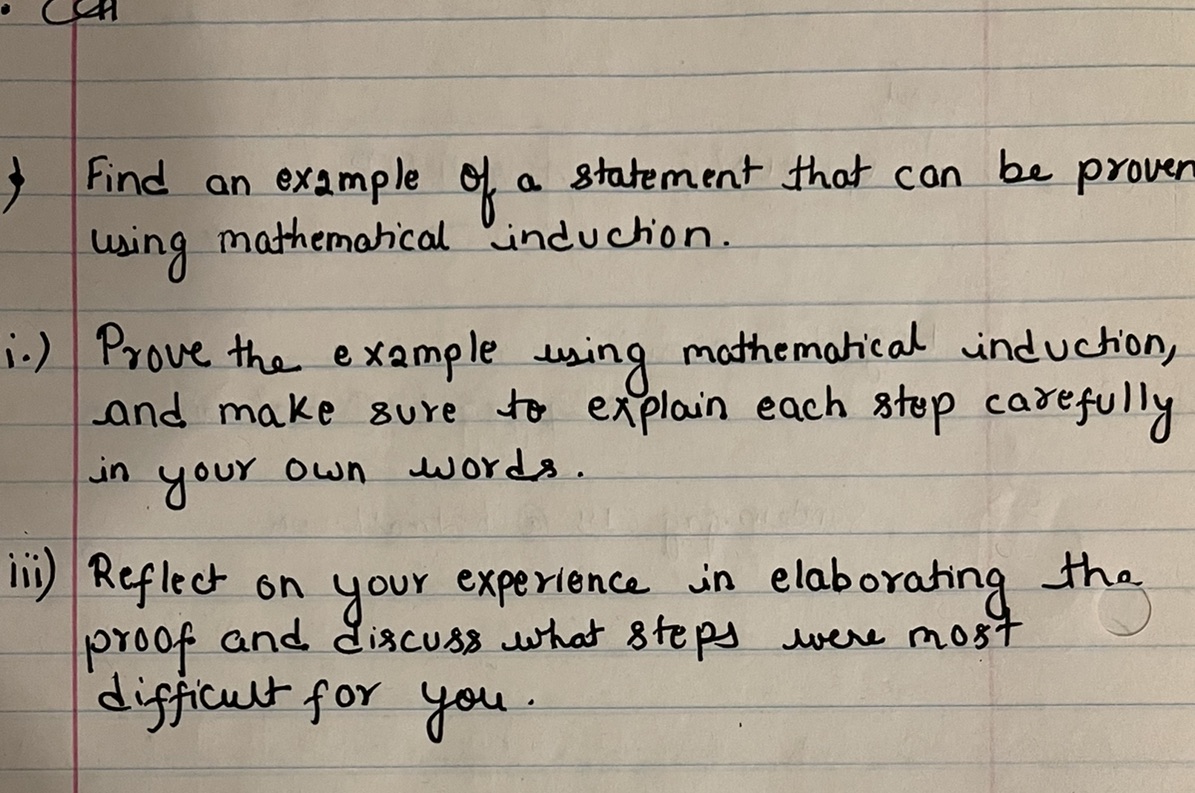 Find an example of a statement that can be proven
using mathematical induction.
i.) Prove the example using mathematical induction,
and make sure to explain each step carefully
in your own words.
iii) Reflect on your experience in elaborating the
proof and discuss what steps were most
difficult for you.